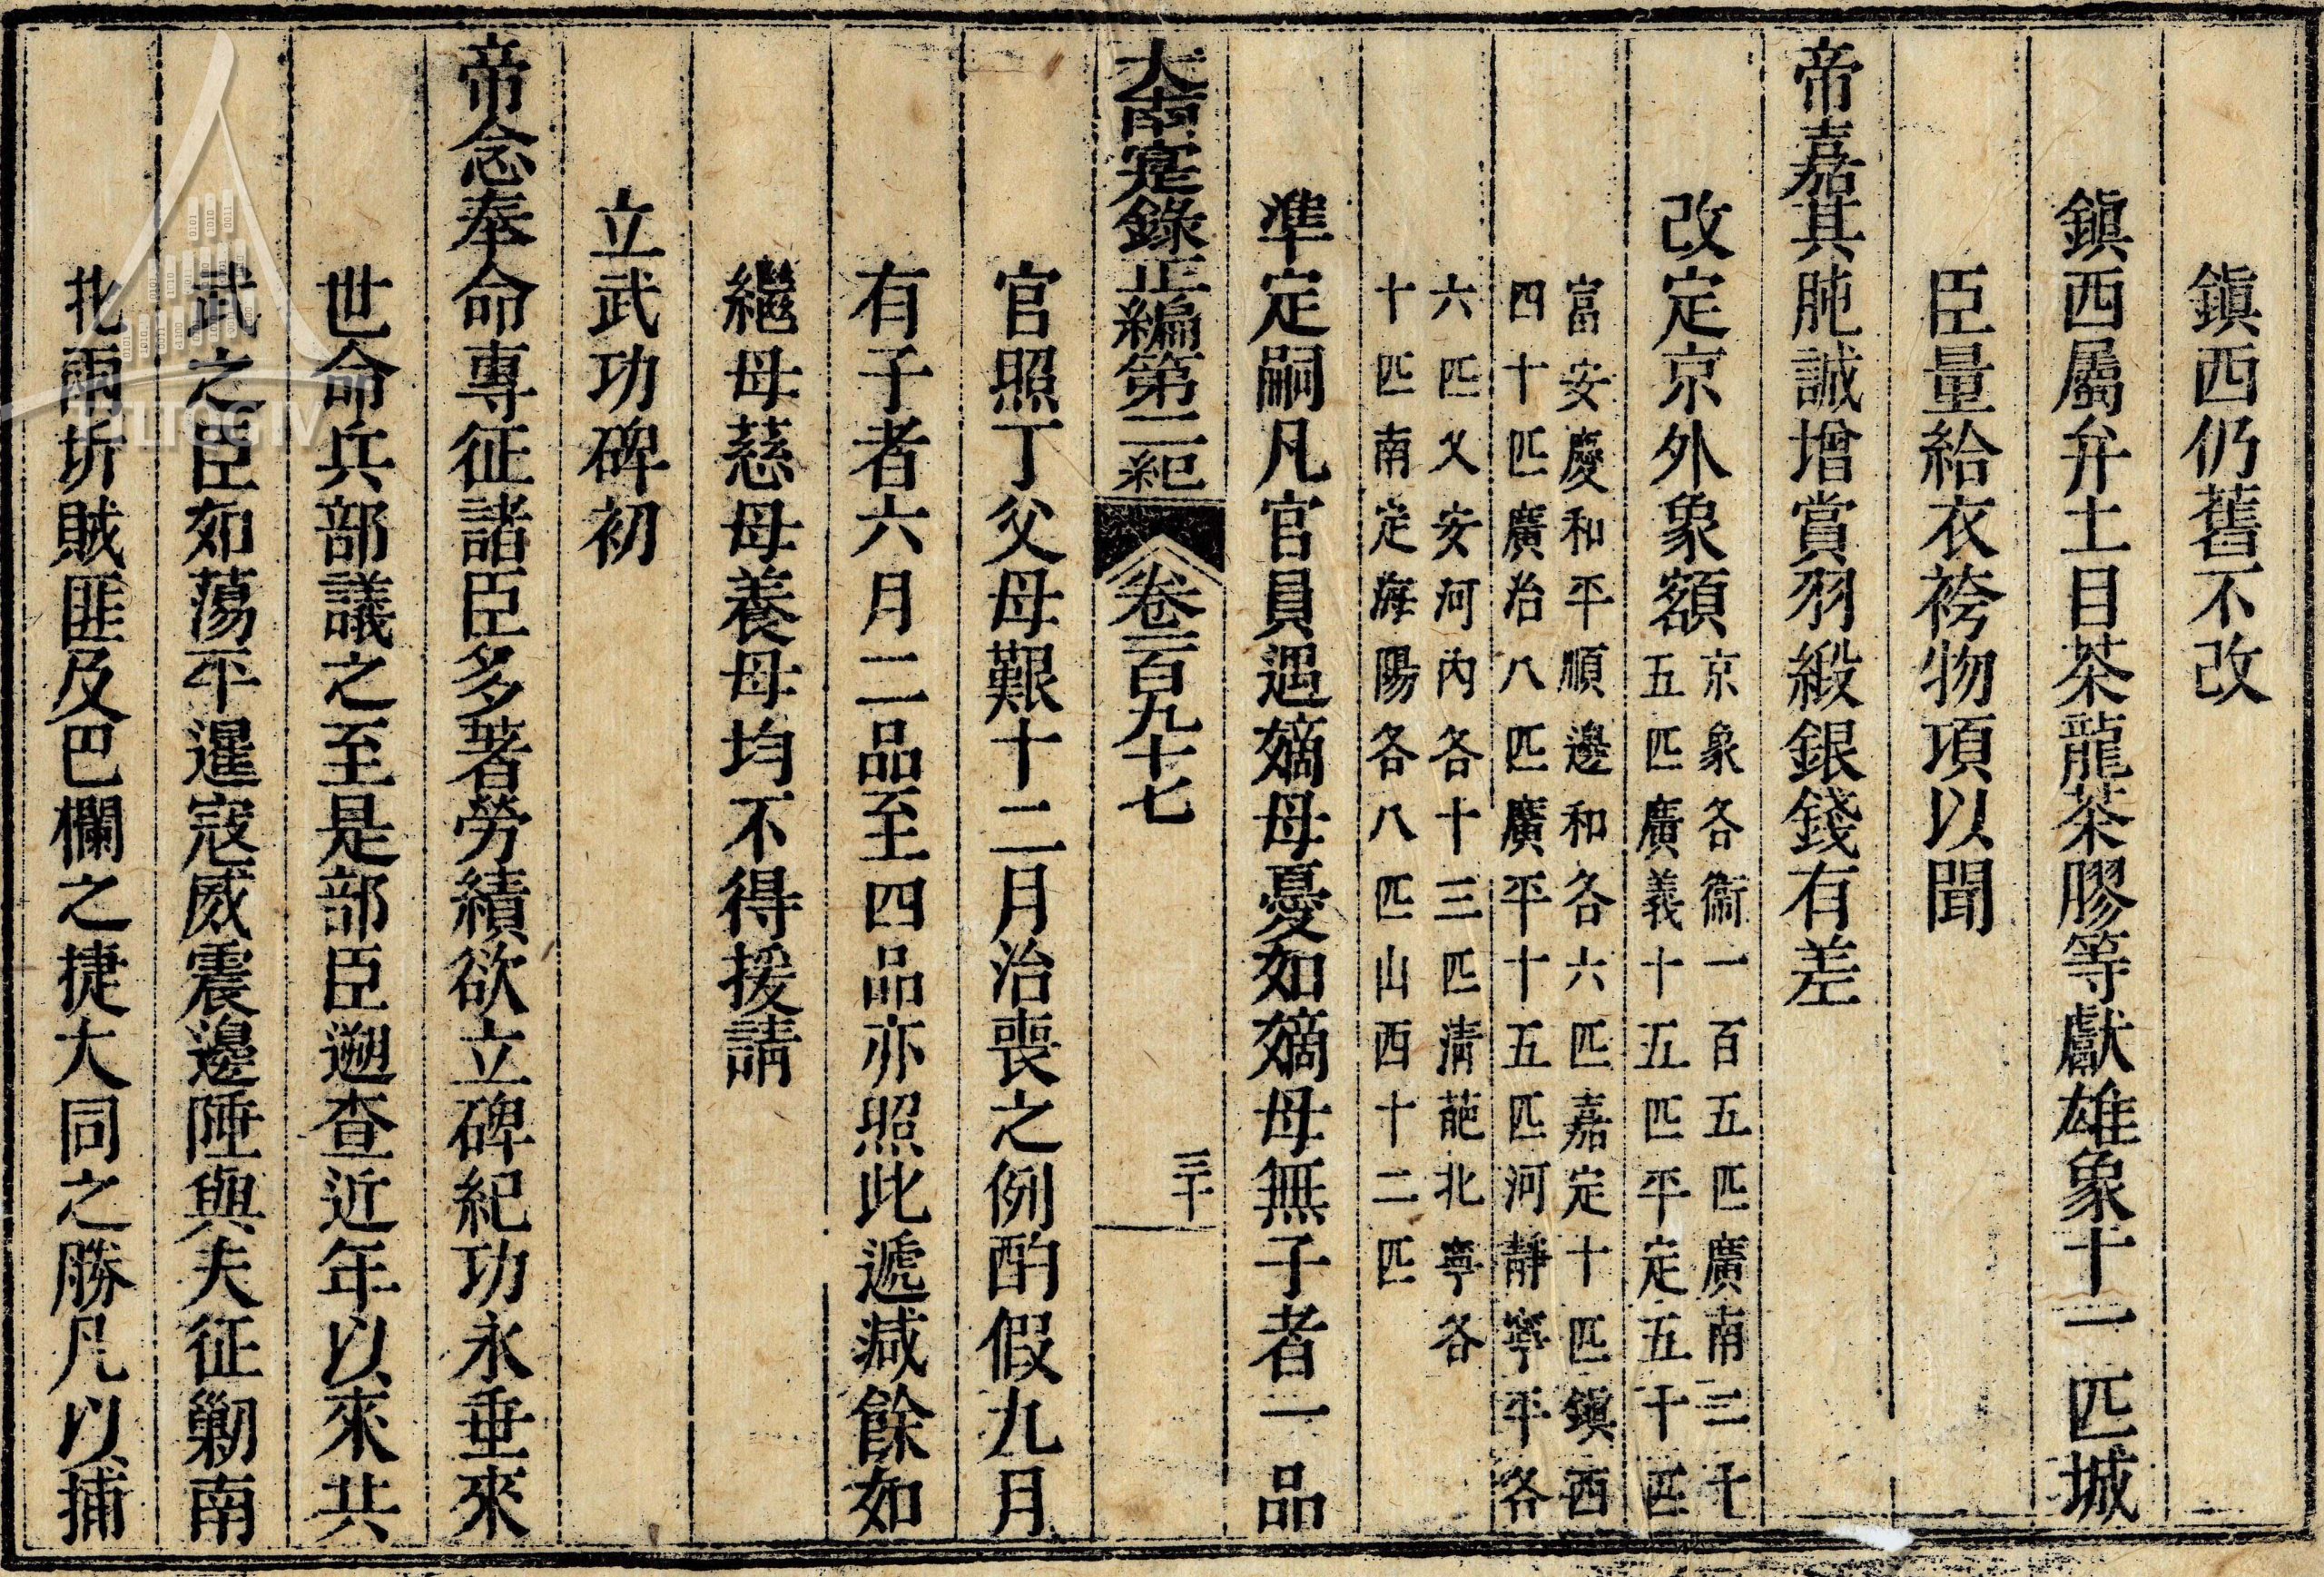 鎮西仍舊不改
鎮西屬弁土目茶龍茶膠等獻雄象十一匹城
臣量給衣袴物項以聞
帝嘉其肫誠增賞羽緞銀錢有差
改定京外象額
京象各衞一百五匹廣南三十
五匹廣義十五匹平定五十匹
富安慶和平順邊和各六匹嘉定十匹鎮西
四十匹廣治八匹廣平十五匹河靜寧平各
六匹乂安河內各十三匹淸葩北寧各
十匹南定海陽各八匹山西十二匹
準定嗣凡官員遇嫡母憂如嫡母無子者一品
大南寔錄正編第二紀 卷二百九十七 三十
官照丁父母艱十二月治喪之例酌假九月
有子者六月二品至四品亦照此遞減餘如
繼母慈母養母均不得援請
立武功碑初
帝念奉命專征諸臣多著勞績欲立碑紀功永垂來
世命兵部議之至是部臣遡查近年以來共
武之臣如蕩平暹寇威震邊陲與夫征勦南
北兩圻賊匪及巴欄之捷大同之勝凡以捕